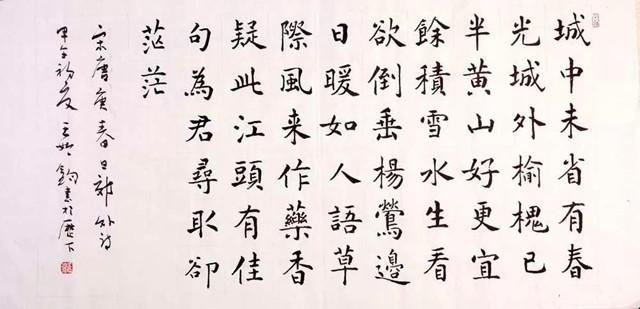 城中未省有春
光城外榆槐已
半黄山好更宜
餘積雪水生看
欲倒垂楊鶯邊
日暖如人語草
際風来作藥香
疑此江頭有佳
句為君尋取卻
茫茫
宋唐庚春日郊外詩
甲午初夏 鈞書於歷下